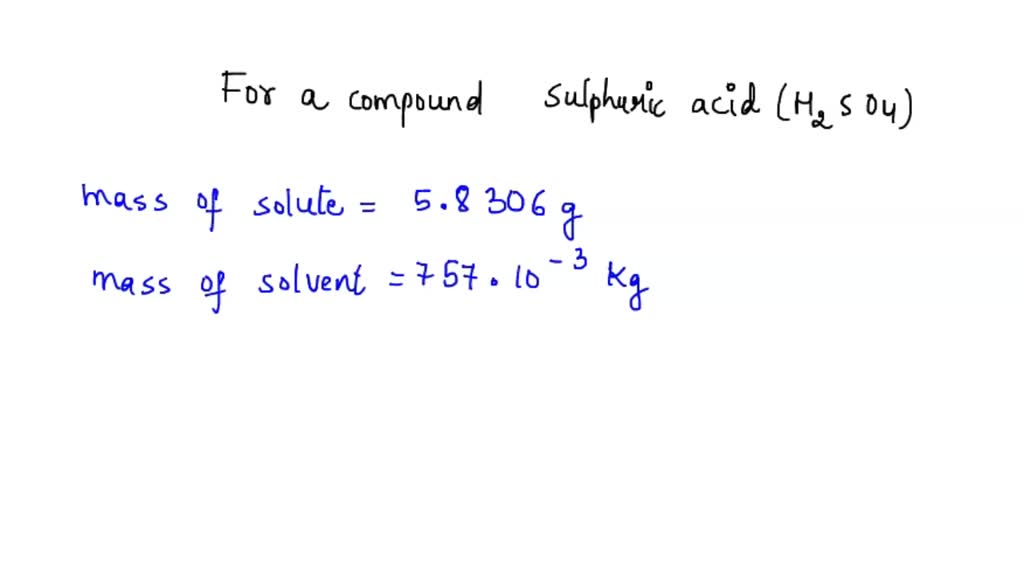 For a compound sulphuric acid (H₂SO₄)
mass of solute = 5.8306 g
mass of solvent = 757.10⁻³ Kg